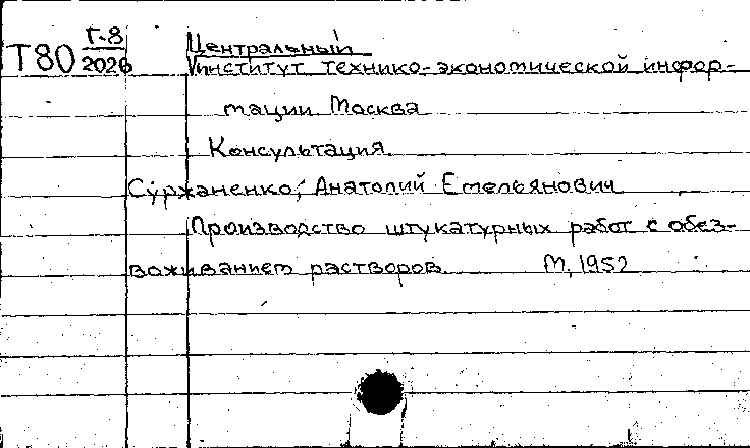 Т80 Г-8
2026
Центральный
институт технико-экономической инфор-
мации Москва
Консультация
Суржаненко, Анатолий Емельянович
Производство штукатурных работ с обез-
воживанием растворов М, 1952